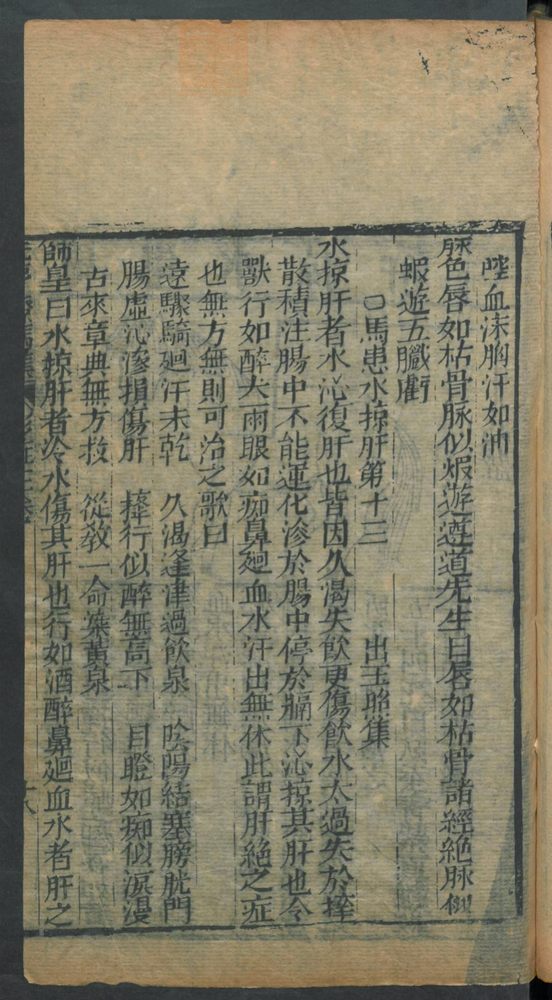 陛血沫胸汗如油
脉色唇如枯骨脉似煆遊遵道先生曰唇如枯骨諸經絶脉似
蝦遊五臟虧
口馬患水掠肝第十三 出王昭集
水掠肝者水沁復肝也皆因久渴失飲更傷飲水太過失於捧
散積注腸中不能運化滲於腸中停於膈下沁掠其肝也令
獸行如醉大雨眼如痴鼻廻血水汗出無休此謂肝絶之症
也無方無則可治之歌曰
遠驟騎廻汗未乾 久渴逢津過飲泉 陰陽結塞膀胱門
腸虛沁滲損傷肝 捧行似醉無高下 目瞪如痴似淚漫
古來章典無方救 從教一命染黃泉
師皇曰水掠肝者冷水傷其肝也行如酒醉鼻廻血水者肝之